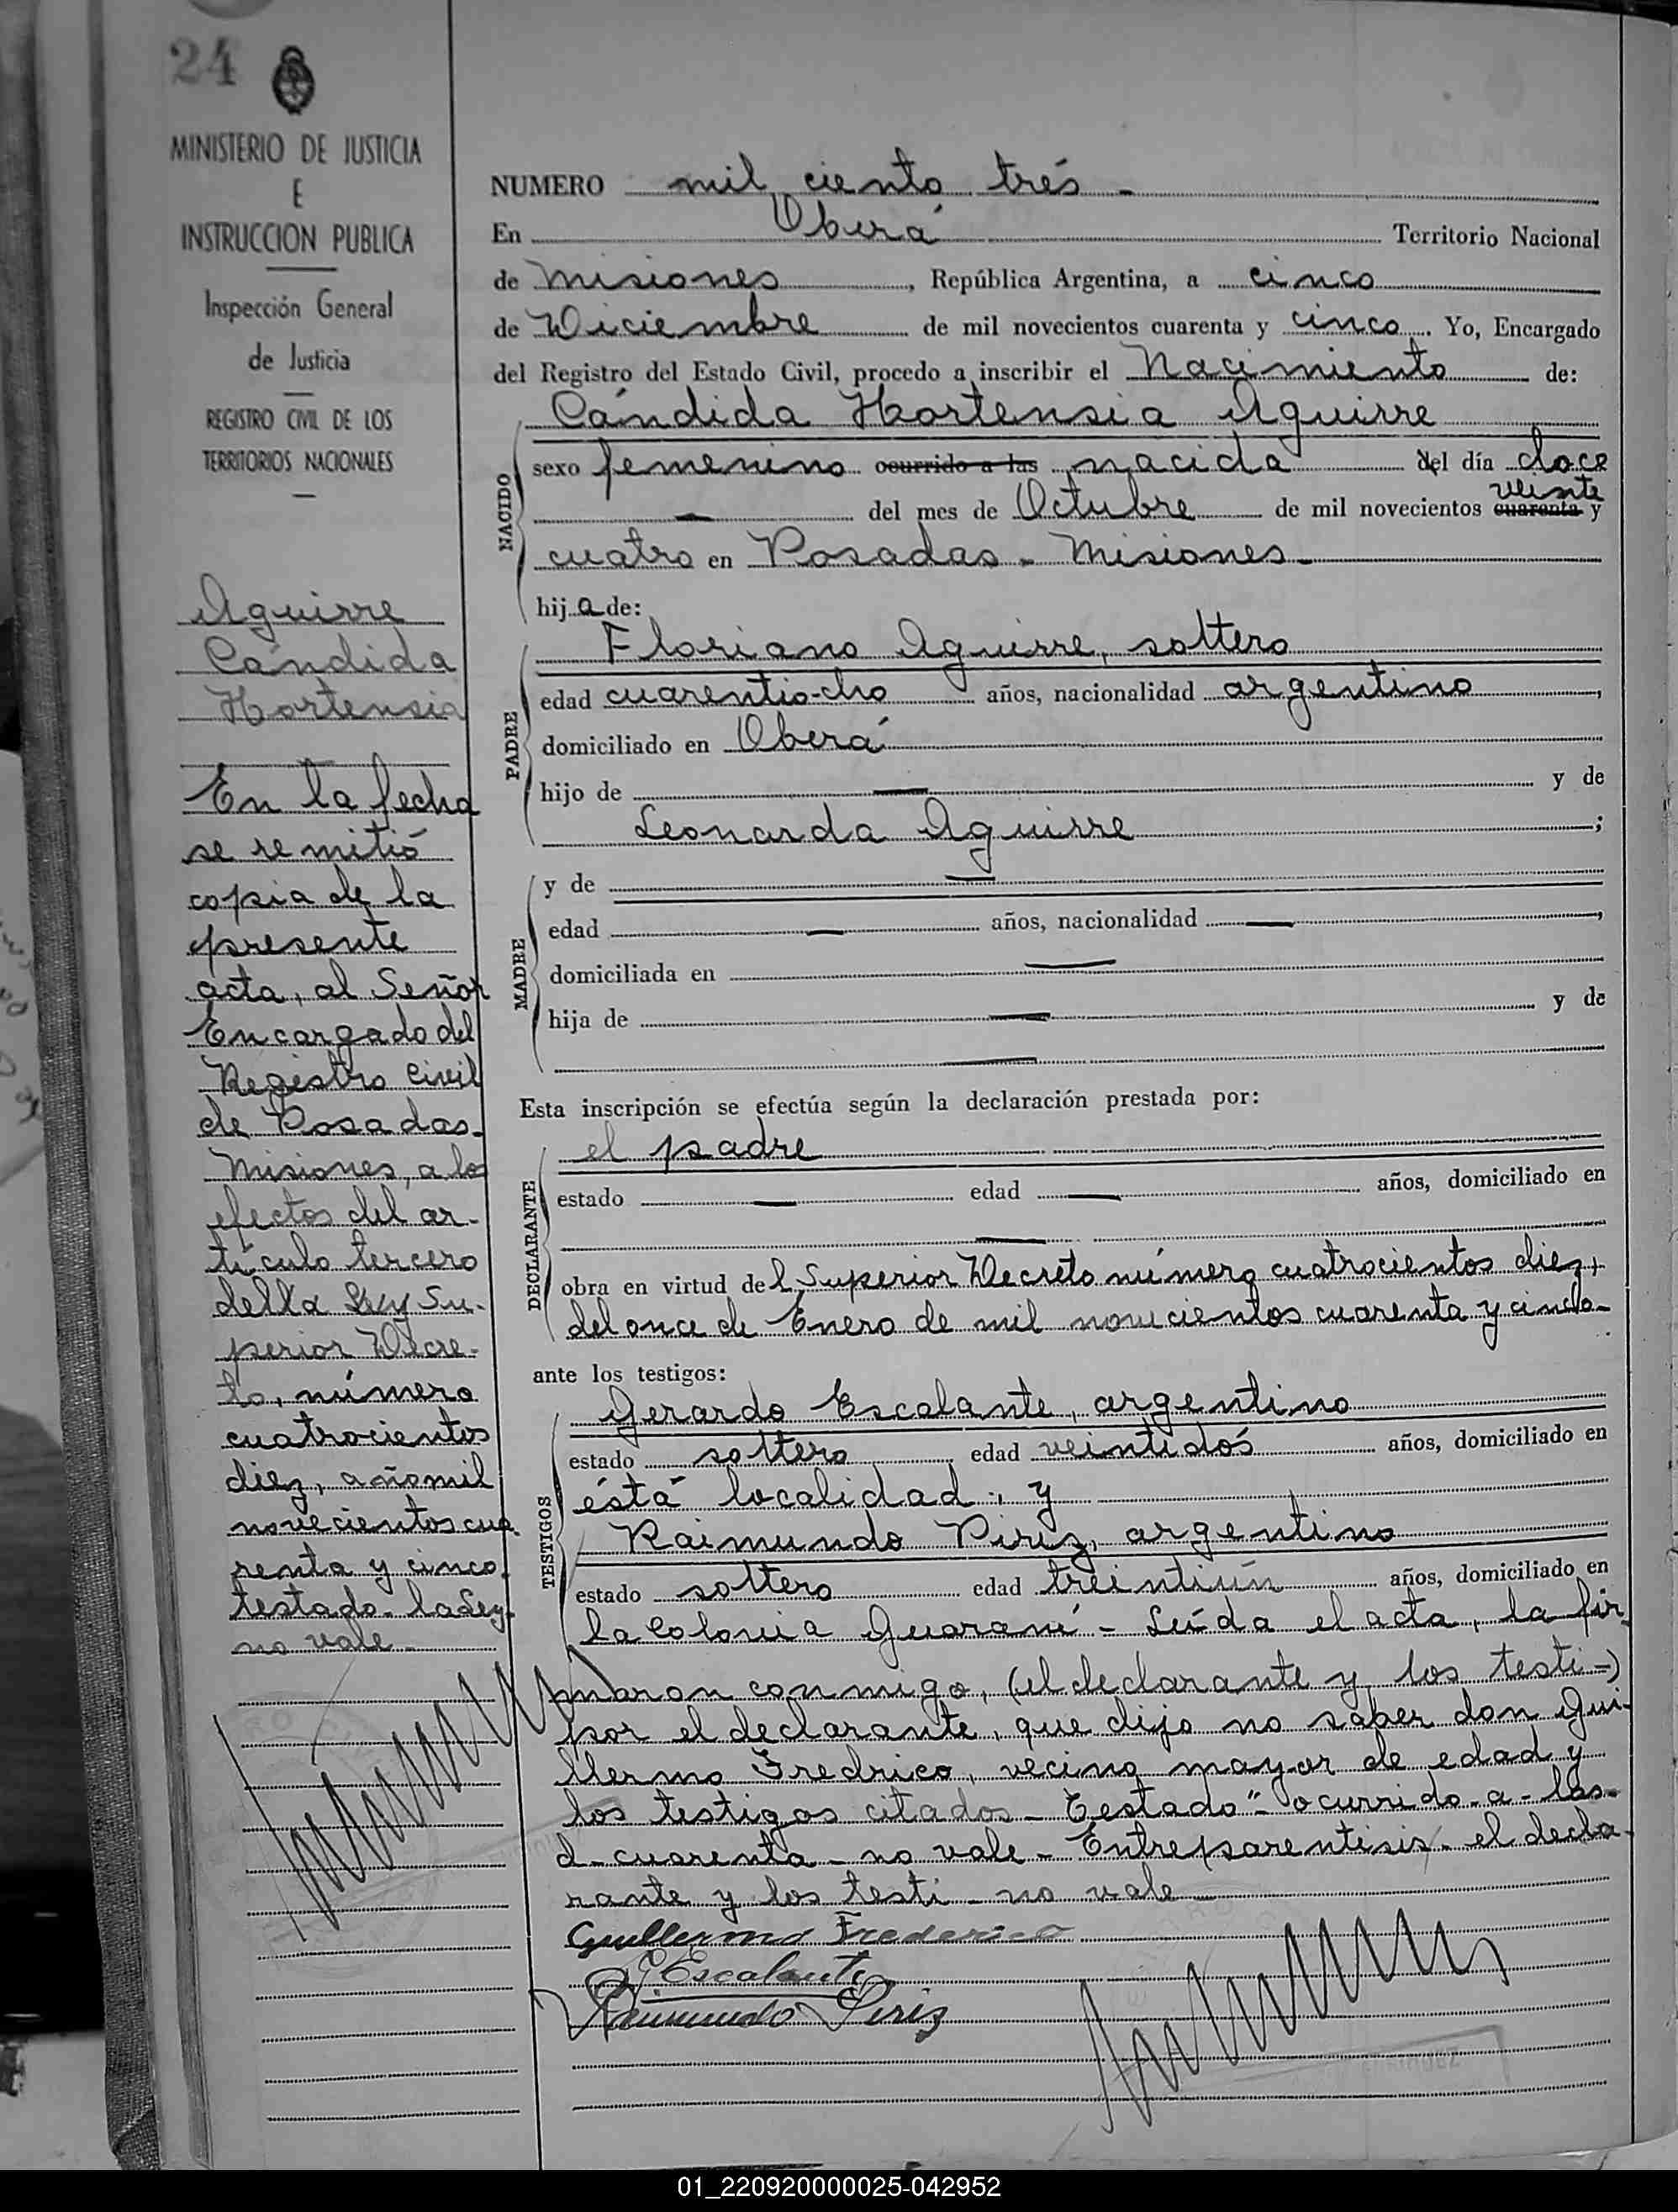 24
MINISTERIO DE JUSTICIA
E
INSTRUCCION PUBLICA
Inspección General
de Justicia
REGISTRO CIVIL DE LOS
TERRITORIOS NACIONALES
Aguirre
Cándida
Hortensia
En la fecha
se remitió
copia de la
presente
acta, al Señor
Encargado del
Registro Civil
de Posadas-
Misiones, a los
efectos del ar-
tículo tercero
della Ley Su-
perior Decre-
to, número
cuatrocientos
diez, año mil
novecientos cua
renta y cinco.
testado- la Ley-
no vale-
NUMERO mil ciento trés -
En Oberá Territorio Nacional
de Misiones, República Argentina, a cinco
de Diciembre de mil novecientos cuarenta y cinco. Yo, Encargado
del Registro del Estado Civil, procedo a inscribir el Nacimiento de:
Cándida Hortensia Aguirre
NACIDO
sexo femenino ocurrido a las nacida del día doce
veinte
- del mes de Octubre de mil novecientos cuarenta y
cuatro en Posadas - Misiones -
hija de:
PADRE
Floriano Aguirre, soltero
edad cuarentiocho años, nacionalidad argentino,
domiciliado en Oberá
hijo de — y de
Leonarda Aguirre ;
MADRE
y de —
edad — años, nacionalidad —,
domiciliada en —
hija de — y de
—
Esta inscripción se efectúa según la declaración prestada por:
DECLARANTE
el padre
estado — edad — años, domiciliado en
—
obra en virtud del Superior Decreto número cuatrocientos diez,
del once de Enero de mil novecientos cuarenta y cinco-
ante los testigos:
TESTIGOS
Gerardo Escalante, argentino
estado soltero edad veintidós años, domiciliado en
ésta localidad, y
Raimundo Piriz, argentino
estado soltero edad treintiún años, domiciliado en
la Colonia Guaraní - Leída el acta, la fir
maron conmigo, (el declarante y los testi-)
por el declarante, que dijo no saber don Gui-
llermo Fredrico, vecino mayor de edad y
los testigos citados - Testado "- ocurrido - a - las-
d - cuarenta - no vale - Entreparentisis - el decla-
rante y los testi - no vale
Guillermo Frederico
G Escalante
Raimundo Piriz
01_220920000025-042952